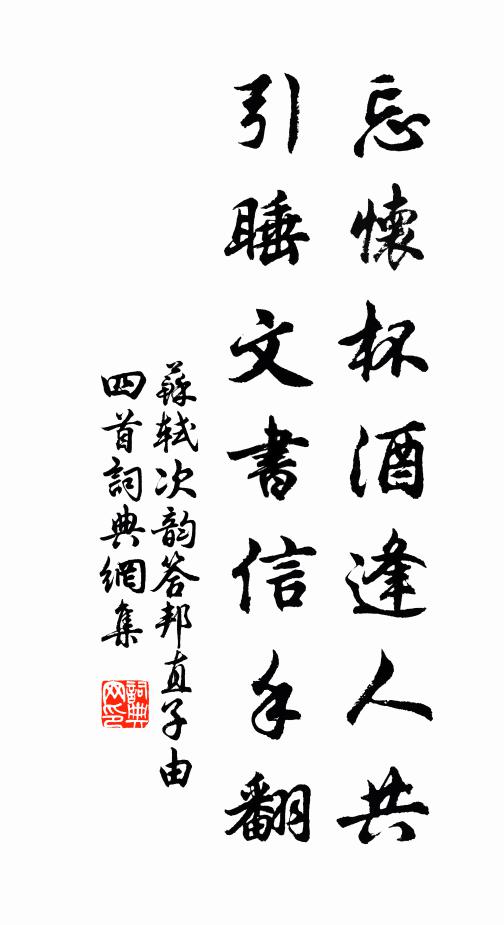 忘懷杯酒逢人共
引睡文書信手翻
蘇軾次韵答邦直子由
四首詞典網集
詞典
网印